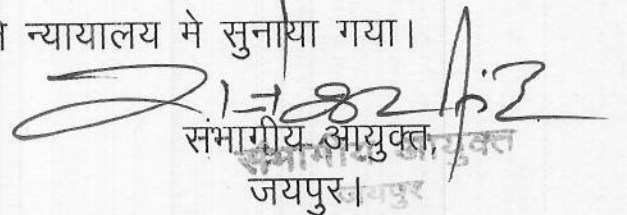 न्यायालय मे सुनाया गया।
संभागीय आयुक्त,
जयपुर।
संभागीय आयुक्त
जयपुर